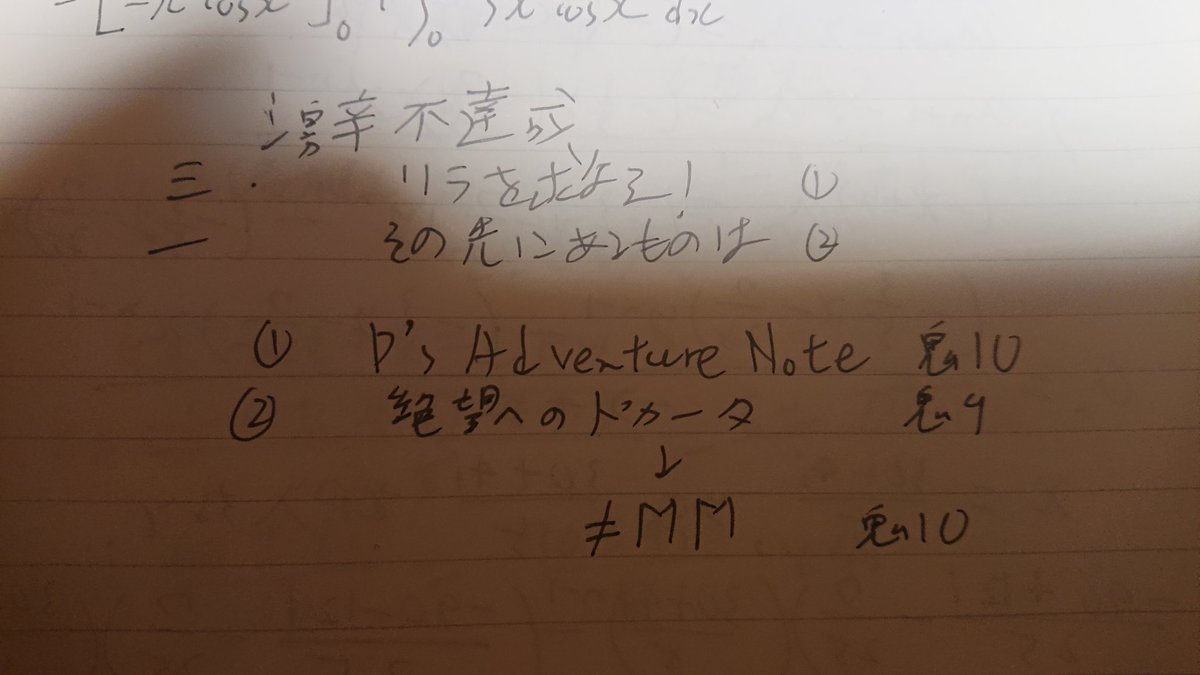 -[-x cos x]₀ ∫₀ 3x cos x dx
激辛不達成
三. リラを求めて! ①
一 その先にあるものは ②
① D's Adventure Note 鬼10
② 絶望へのトッカータ 鬼9
↓
≠MM 鬼10